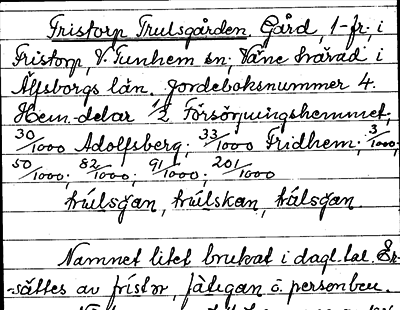 Fristorp Trulsgården. Gård, 1-fr, i
Fristorp, V. Tunhem sn, Väne härad i
Älfsborgs län. Jordeboksnummer 4.
Hem.-delar 1/2 Försörjningshemmet,
30/1000 Adolfsberg; 33/1000 Fridhem; 3/1000;
50/1000; 82/1000; 91/1000; 201/1000
trúlsg̀an, trúlskan, trúlsgan
Namnet litet brukat i dagl. tal. Er-
sättes av frístɔr, jàtegan o. personben.